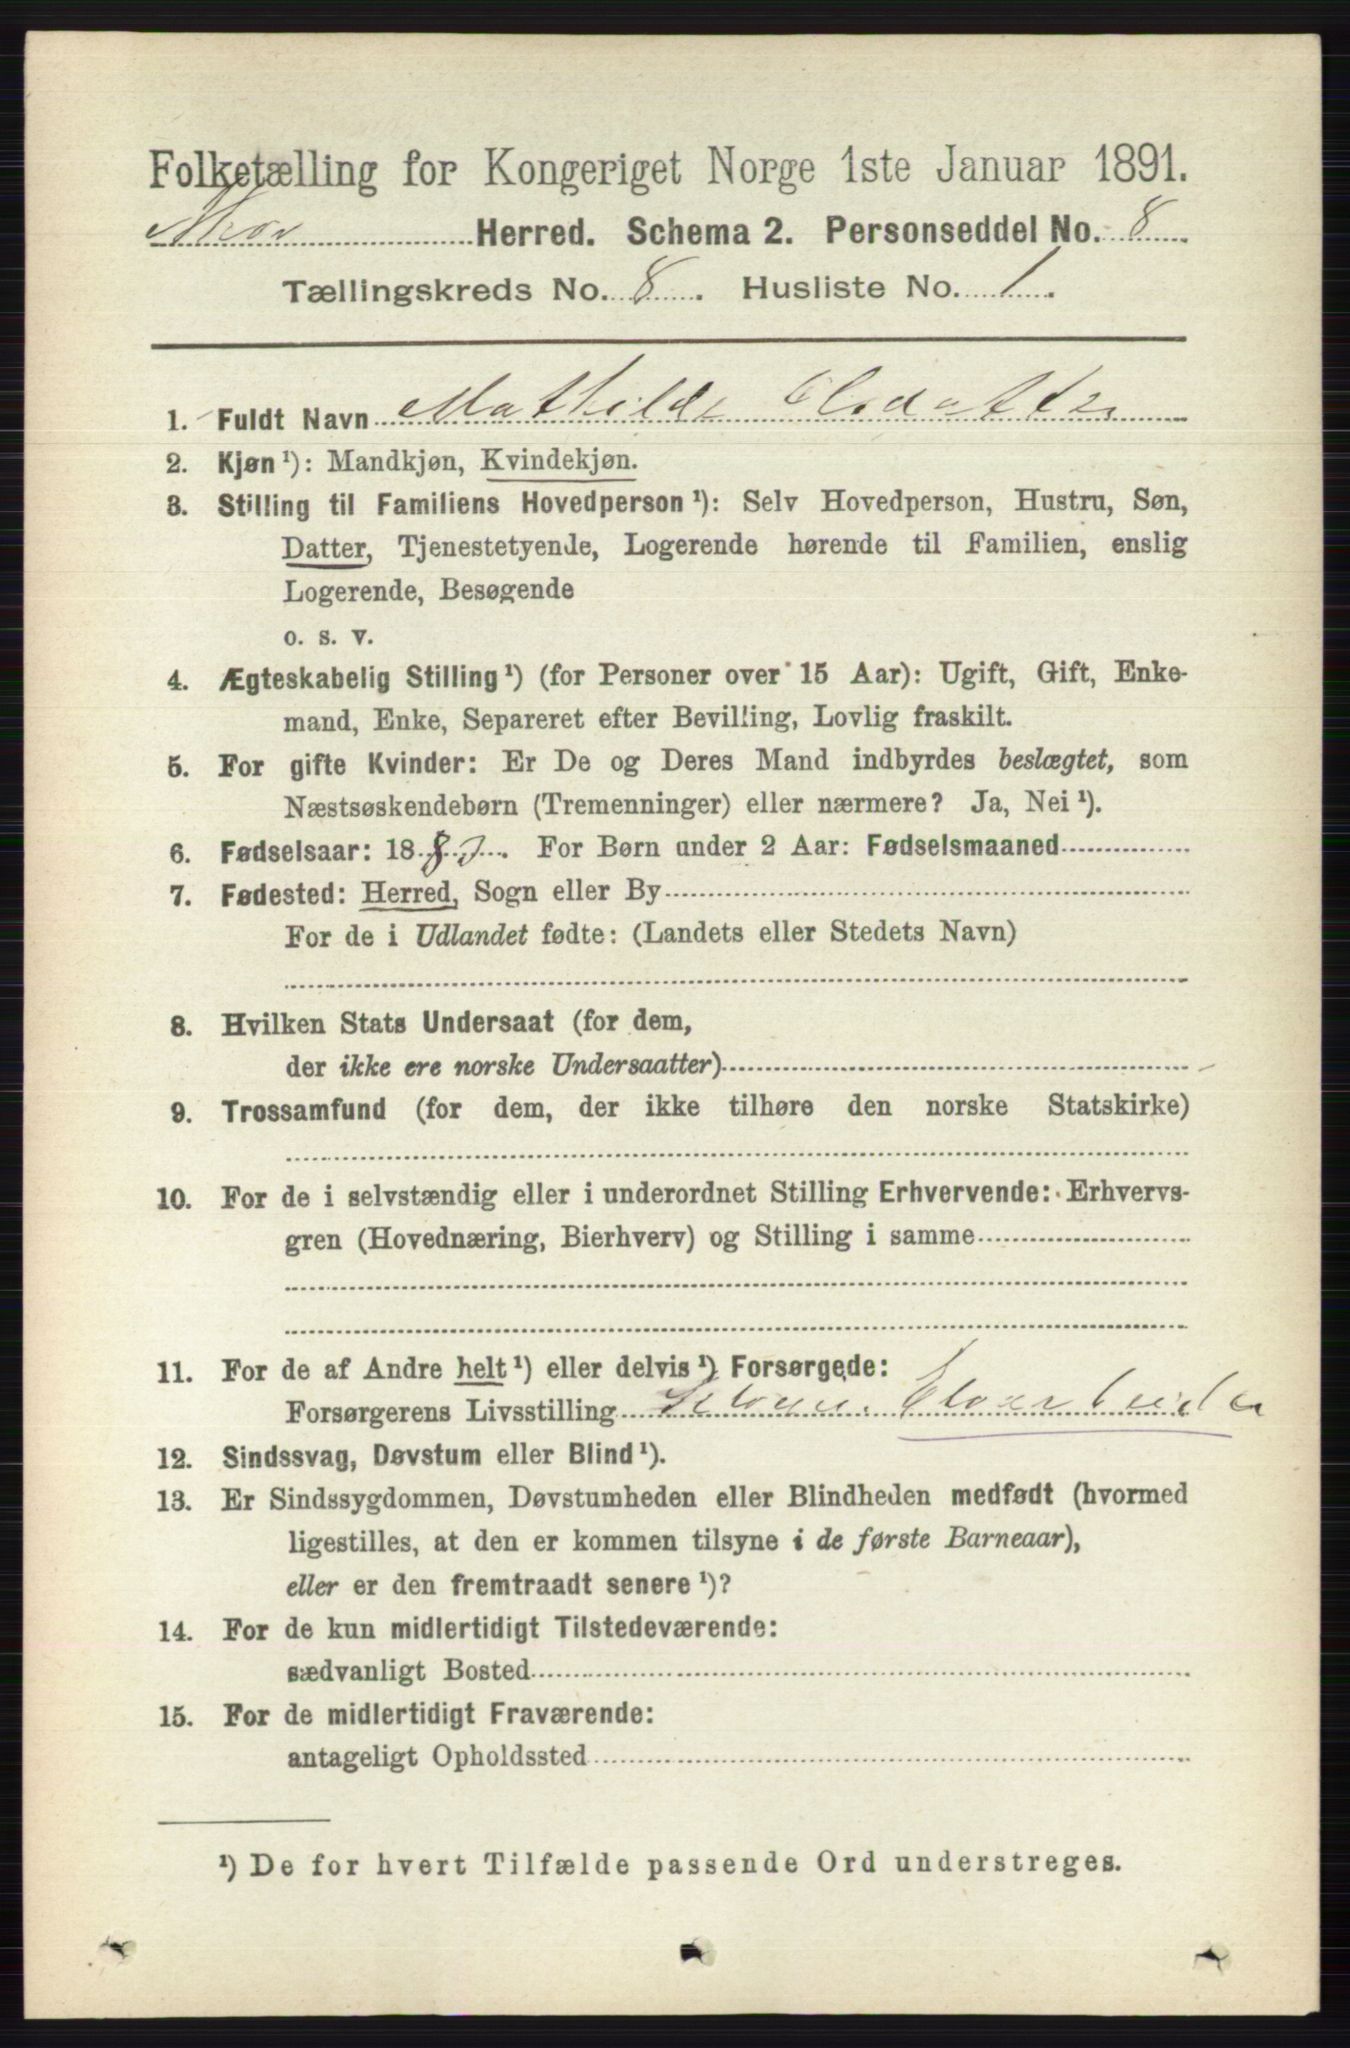 Folketælling for Kongeriget Norge 1ste Januar 1891.
Herred. Schema 2. Personseddel No. 8
Tællingskreds No. 8. Husliste No. 1.
1. Fuldt Navn Mathilde Olsdatter
2. Kjøn ¹): Mandkjøn, Kvindekjøn.
3. Stilling til Familiens Hovedperson ¹): Selv Hovedperson, Hustru, Søn,
Datter, Tjenestetyende, Logerende hørende til Familien, enslig
Logerende, Besøgende
o. s. v.
4. Ægteskabelig Stilling ¹) (for Personer over 15 Aar): Ugift, Gift, Enke-
mand, Enke, Separeret efter Bevilling, Lovlig fraskilt.
5. For gifte Kvinder: Er De og Deres Mand indbyrdes beslægtet, som
Næstsøskendebørn (Tremenninger) eller nærmere? Ja, Nei ¹).
6. Fødselsaar: 18 For Børn under 2 Aar: Fødselsmaaned
7. Fødested: Herred, Sogn eller By
For de i Udlandet fødte: (Landets eller Stedets Navn)
8. Hvilken Stats Undersaat (for dem,
der ikke ere norske Undersaatter)
9. Trossamfund (for dem, der ikke tilhøre den norske Statskirke)
10. For de i selvstændig eller i underordnet Stilling Erhvervende: Erhvervs-
gren (Hovednæring, Bierhverv) og Stilling i samme
11. For de af Andre helt ¹) eller delvis ¹) Forsørgede:
Forsørgerens Livsstilling
12. Sindssvag, Døvstum eller Blind ¹).
13. Er Sindssygdommen, Døvstumheden eller Blindheden medfødt (hvormed
ligestilles, at den er kommen tilsyne i de første Barneaar),
eller er den fremtraadt senere ¹)?
14. For de kun midlertidigt Tilstedeværende:
sædvanligt Bosted
15. For de midlertidigt Fraværende:
antageligt Opholdssted
¹) De for hvert Tilfælde passende Ord understreges.